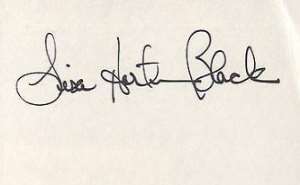 Lisa Hartman Black